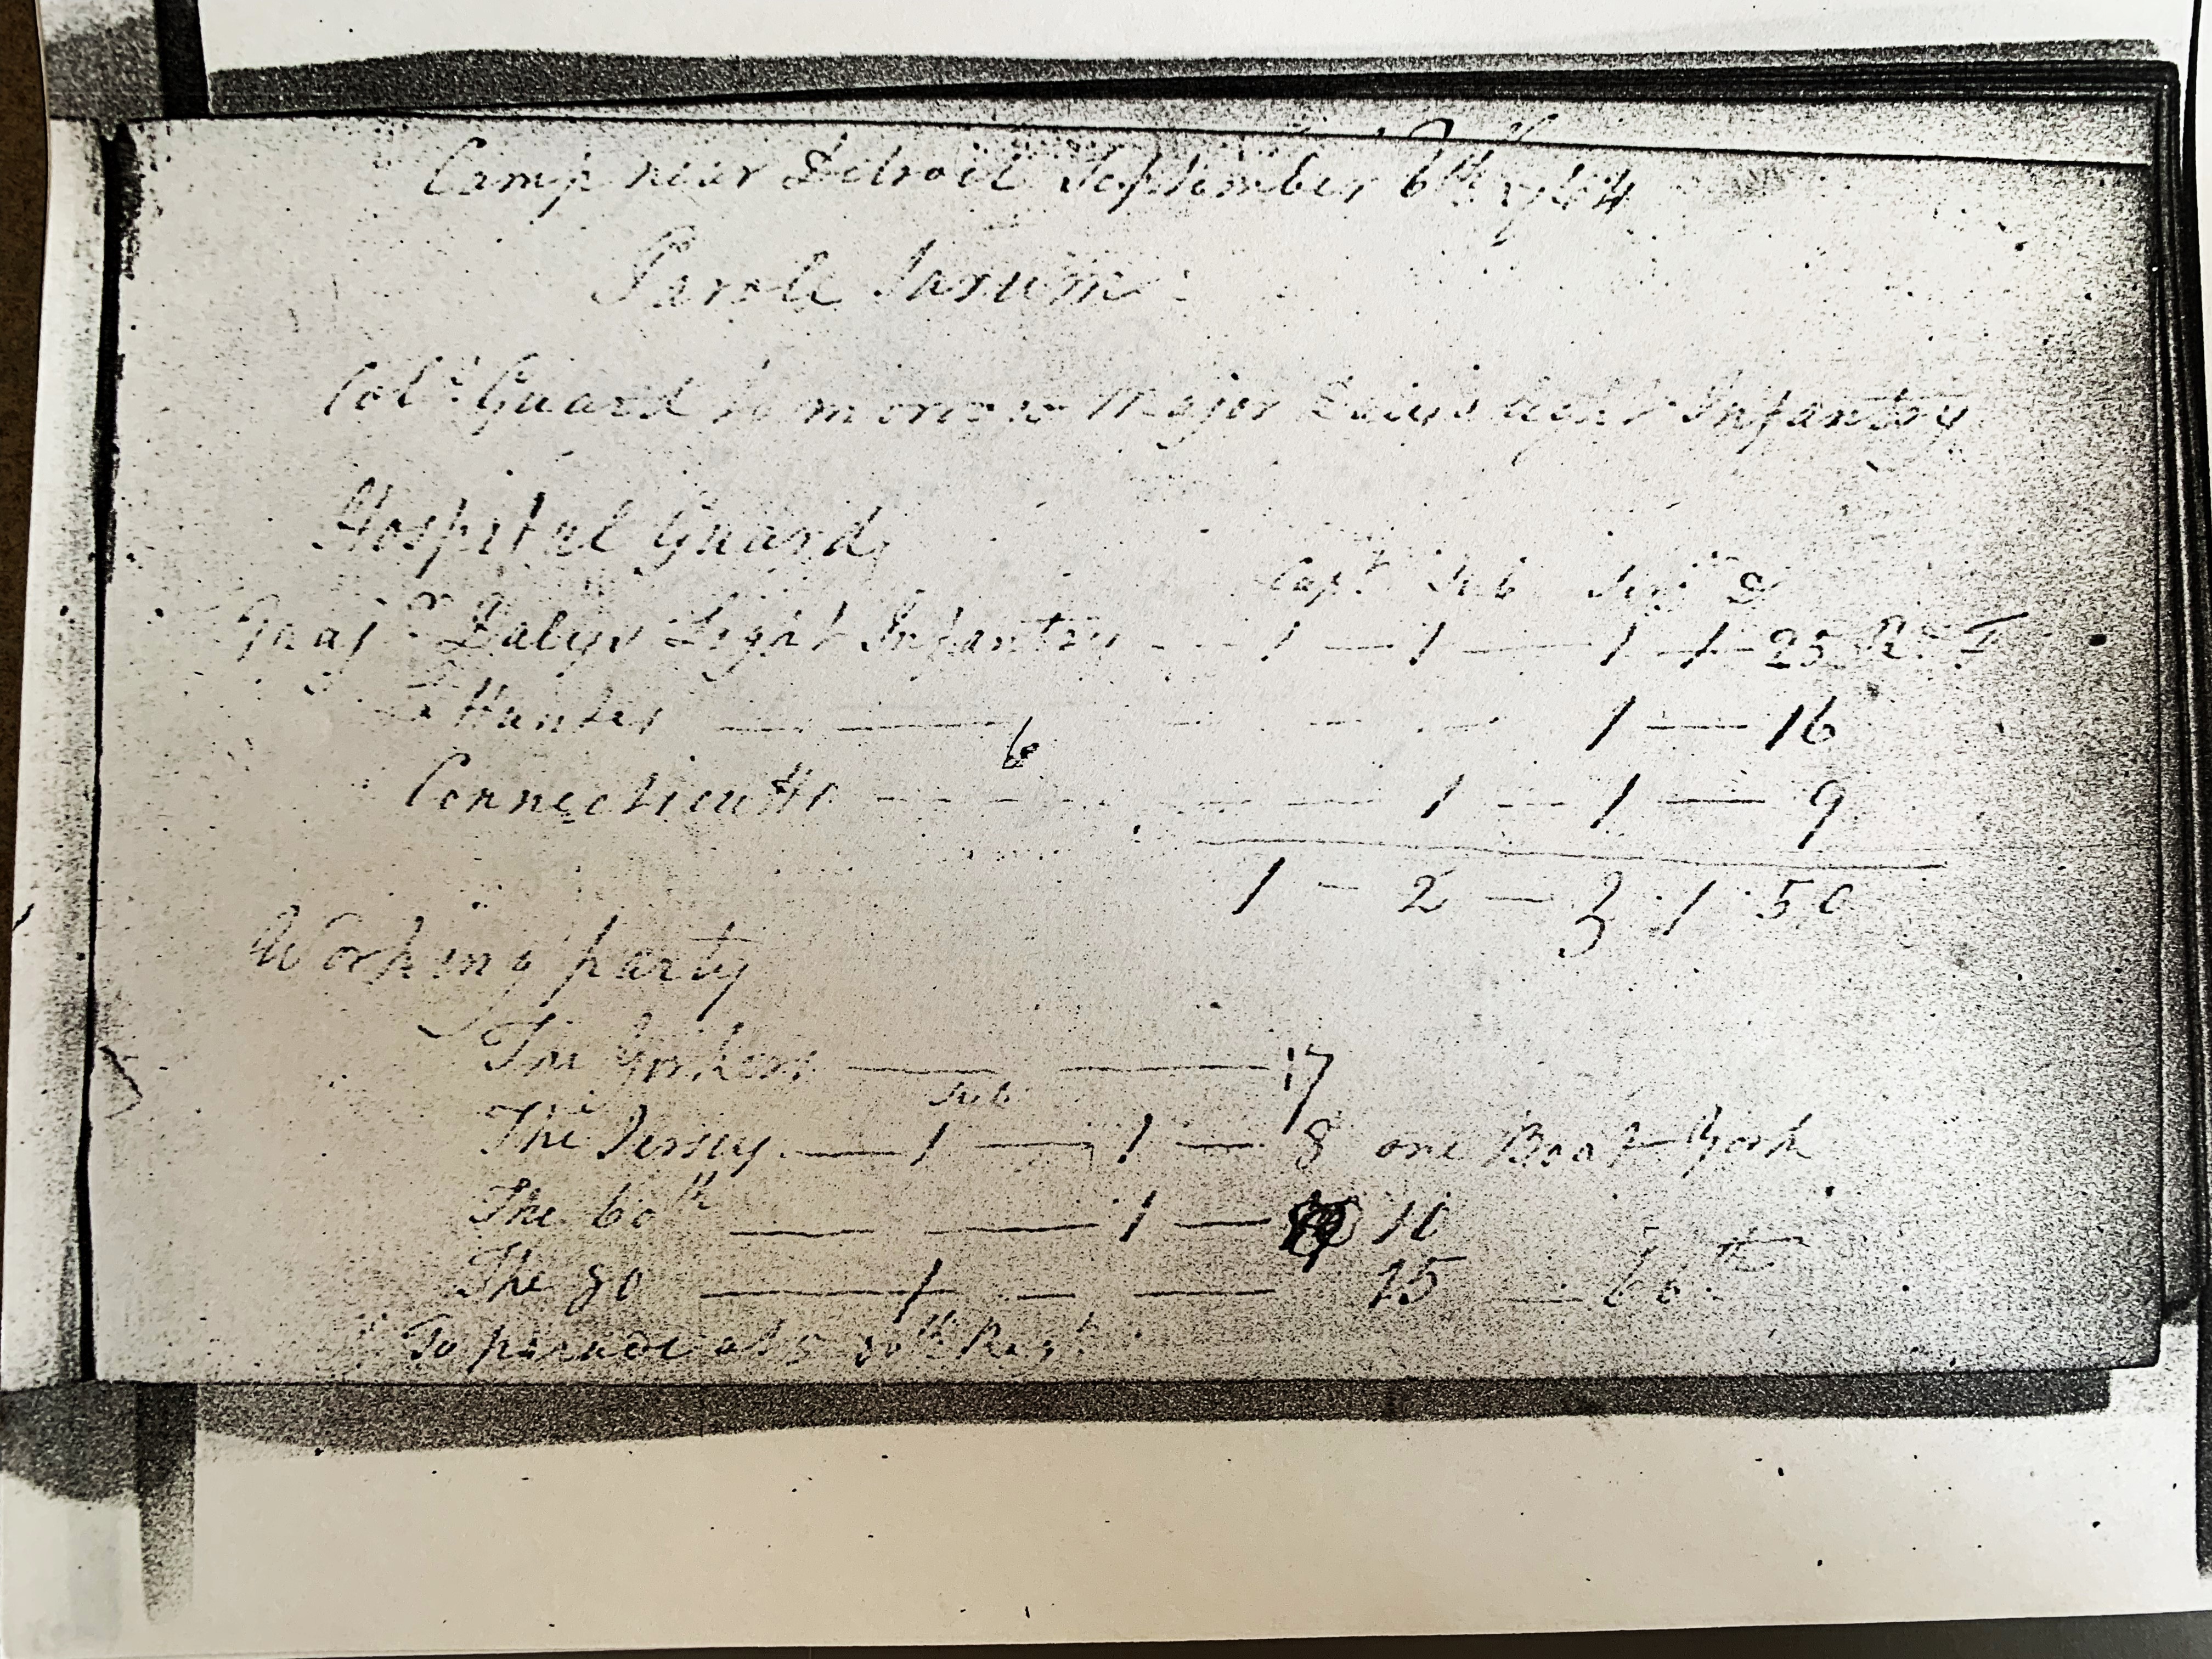 Camp near Detroit September 6th 1764
Parole Sarum
Col.s Guard to morrow Major Dalys light Infantry
Hospital Guard,
Capt Sub Serjt D
Majr Dalys Light Infantry — 1 — 1 — 1 1 25 R & F
Do Hunters — — 1 — 16
6
Connecticutts — — 1 — 1 — 9
1 - 2 — 3 1 50
Working party
The Yorkers — — 17
Sub
The Jersey — 1 — 1 — 8 one Boat York
The 60th — — 1 — 10
The 80 — 1 — — 15 — 60th
To parade at 5 80th Regt